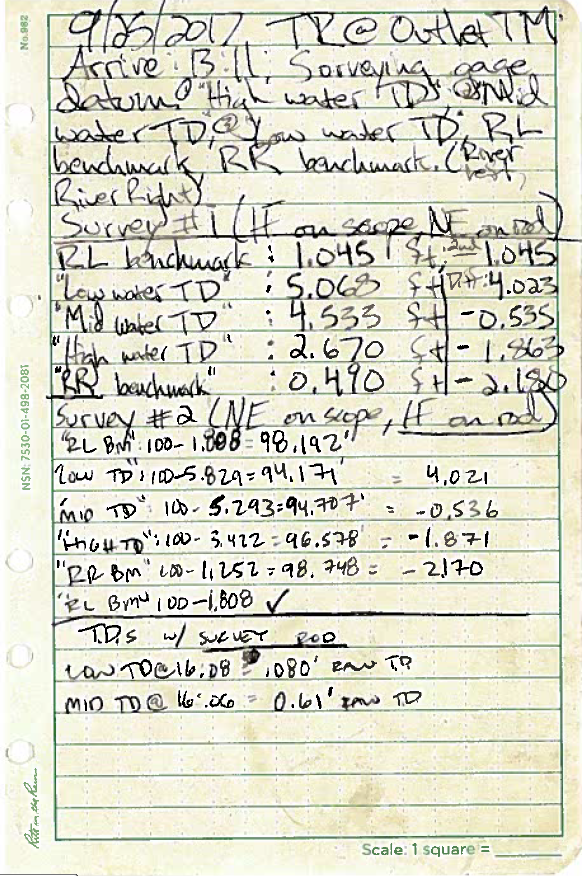 No. 982
9/25/2017 TR @ Outlet TM
Arrive: Bill, Surveying gage
datum @ "High water TD", @ "Mid
water TD, @ "Low water TD", RL
benchmark RR benchmark. (River
RiverRight)
Survey #1 (IF on scope, NE on rod)
RL benchmark : 1.045 ft, 2nd 1.045
"Low water TD" : 5.068 ft Diff: 4.023
"Mid water TD" : 4.533 ft -0.535
"High water TD" : 2.670 ft -1.863
"RR benchmark" : 0.490 ft -2.180
Survey #2 (NE on scope, IF on rod)
"RL BM": 100-1.808 = 98.192'
"Low TD": 100-5.829=94.171' = 4.021
"MID TD": 100-5.293=94.707' = -0.536
"HIGH TD": 100-3.422=96.578' = -1.871
"RR BM" 100-1.252=98.748 = -2.170
"RL BM" 100-1.808 ✓
T.D.s w/ SURVEY ROD
LOW TD@16:08 = .080' RAW TD
MID TD@ 16:06 = 0.61' RAW TD
NSN: 7530-01-498-2081
Rite in the Rain
Scale: 1 square =